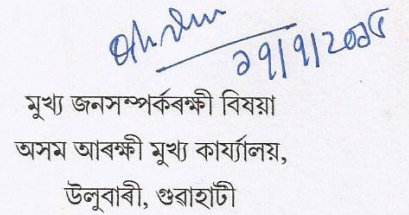 ২৭/৭/২০১৫
মুখ্য জনসম্পৰ্কৰক্ষী বিষয়া
অসম আৰক্ষী মুখ্য কাৰ্য্যালয়,
উলুবাৰী, গুৱাহাটী